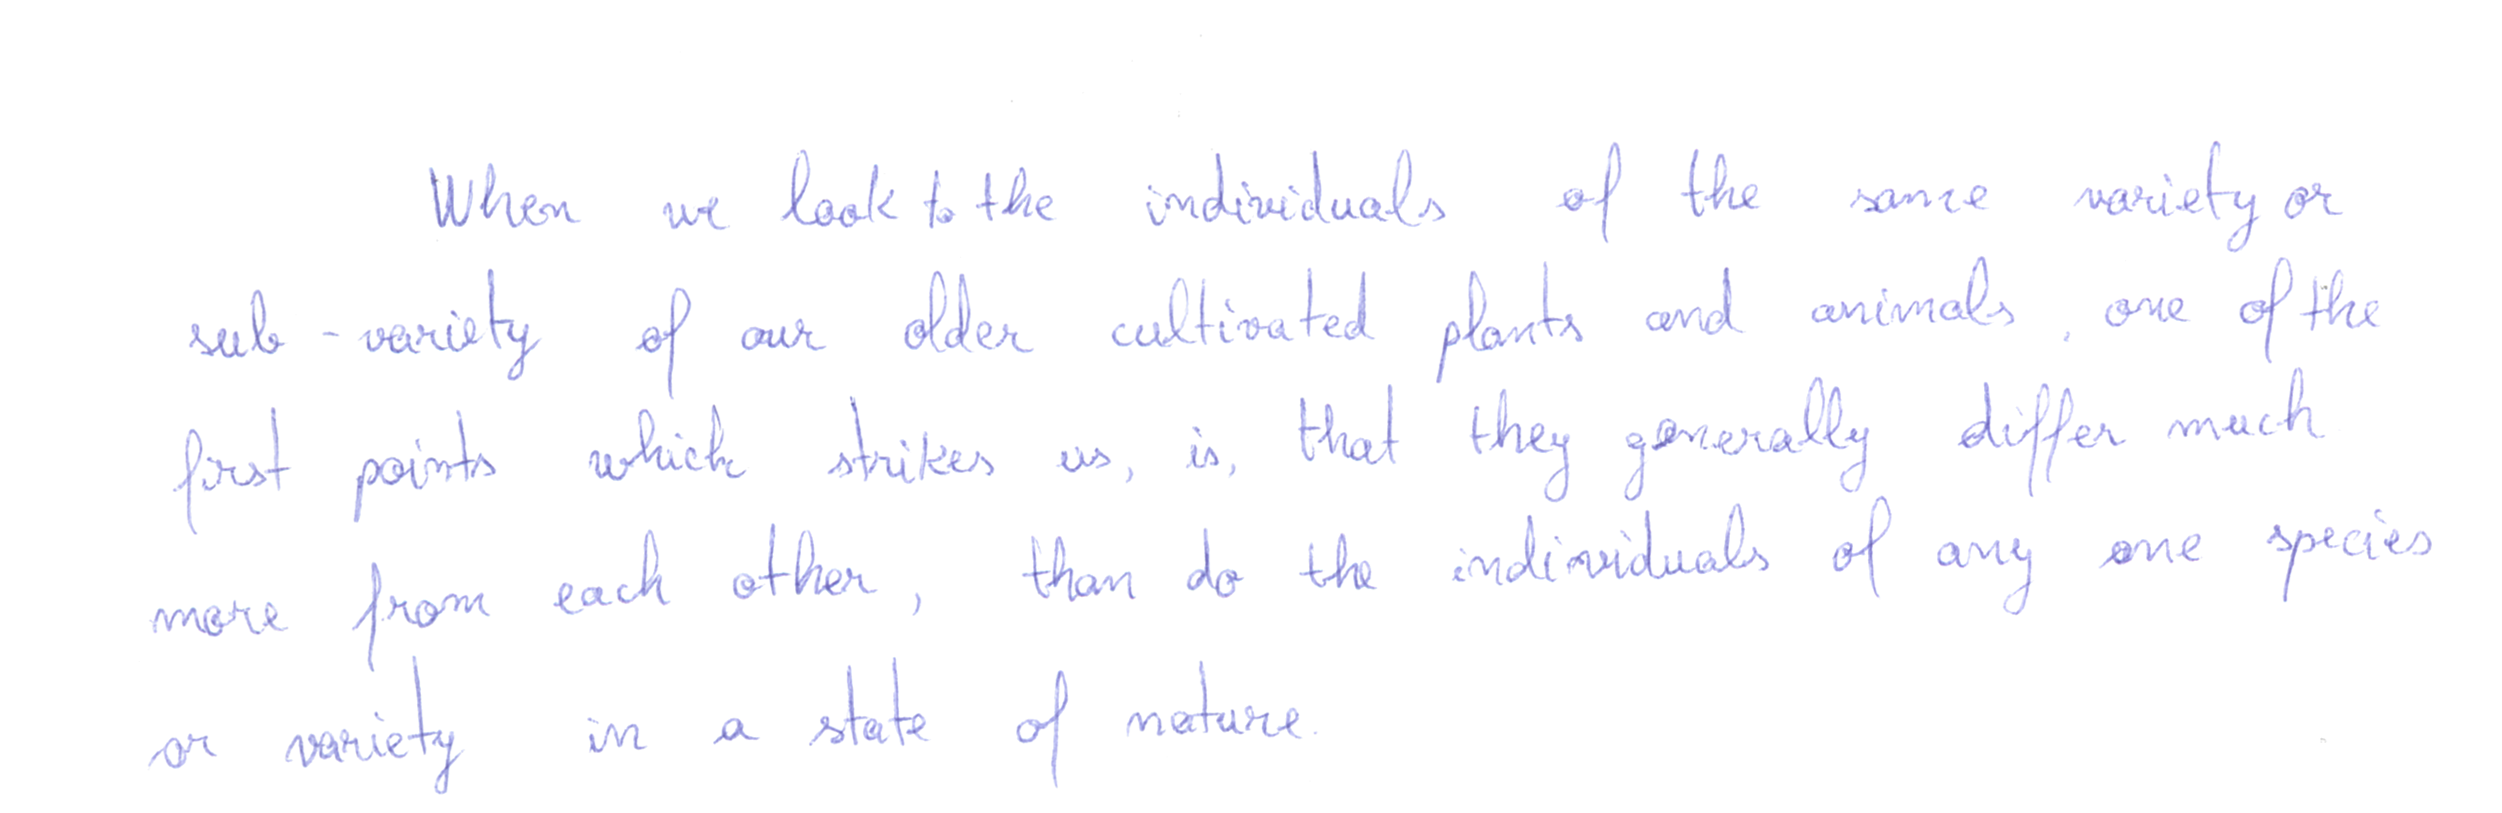 When we look to the individuals of the same variety or
sub-variety of our older cultivated plants and animals, one of the
first points which strikes us, is, that they generally differ much
more from each other, than do the individuals of any one species
or variety in a state of nature.